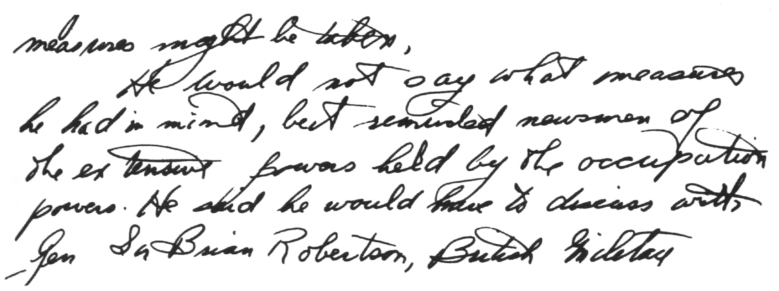 measures might be taken,
He would not say what measures
he had in mind, but reminded newsmen of
the extensive powers held by the occupation
powers. He said he would have to discuss with
Gen Sir Brian Robertson, British Military